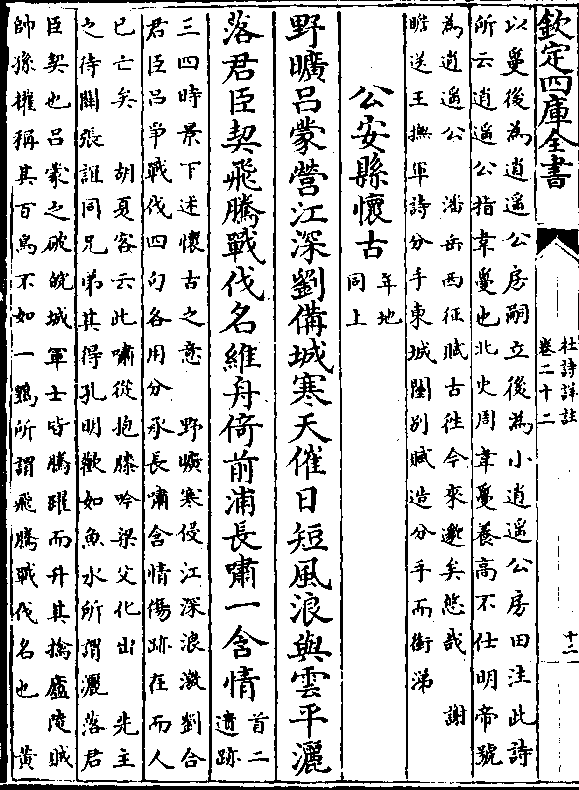 欽定四庫全書
杜詩詳註
卷二十二
十二
以夐後為逍遥公房嗣立後為小逍遥公房田注此詩
所云逍遥公指韋夐也北史周韋夐養高不仕明帝號
為逍遥公 潘岳西征賦古往今來邈矣悠哉 謝
瞻送王撫軍詩分手東城闉别賦造分手而銜涕
公安縣懷古
年地
同上
野曠吕蒙營江深劉備城寒天催日短風浪與雲平灑
落君臣契飛騰戰伐名維舟倚前浦長嘯一含情
首二
遺跡
三四時景下述懷古之意 野曠寒侵江深浪激劉合
君臣吕爭戰伐四句各用分承長嘯含情傷跡在而人
已亡矣 胡夏客云此嘯從抱膝吟梁父化出 先主
之待關張誼同兄弟其得孔明歡如魚水所謂灑落君
臣契也吕蒙之破皖城軍士皆騰躍而升其擒廬陵賊
帥孫權稱其百鳥不如一鶚所謂飛騰戰伐名也 黄